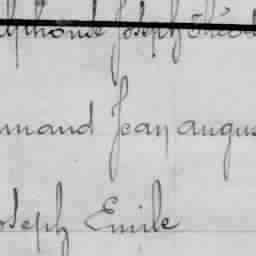 lphonse Joseph Théo
mand Jean augus
oseph Emile